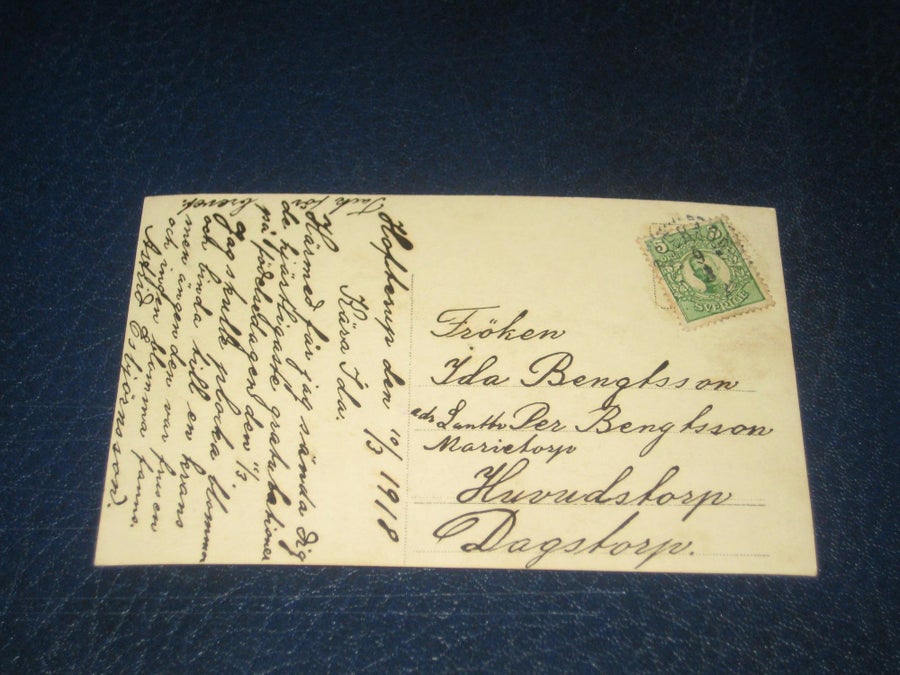 Hofterup den 10/3 1918
Kära Ida.
Härmed får jag sända Dig
de hjärtligaste gratulationer
på födelsedagen den 11/3.
Jag skulle plocka blommor
och binda till en krans
men ängen den var frusen
och ingen blomma fanns.
Astrid Esbjörnsson.
Tack för
brevet.
5
SVERIGE
Fröken
Ida Bengtsson
adr Lantbr Per Bengtsson
Marietorp
Huvudstorp
Dagstorp.